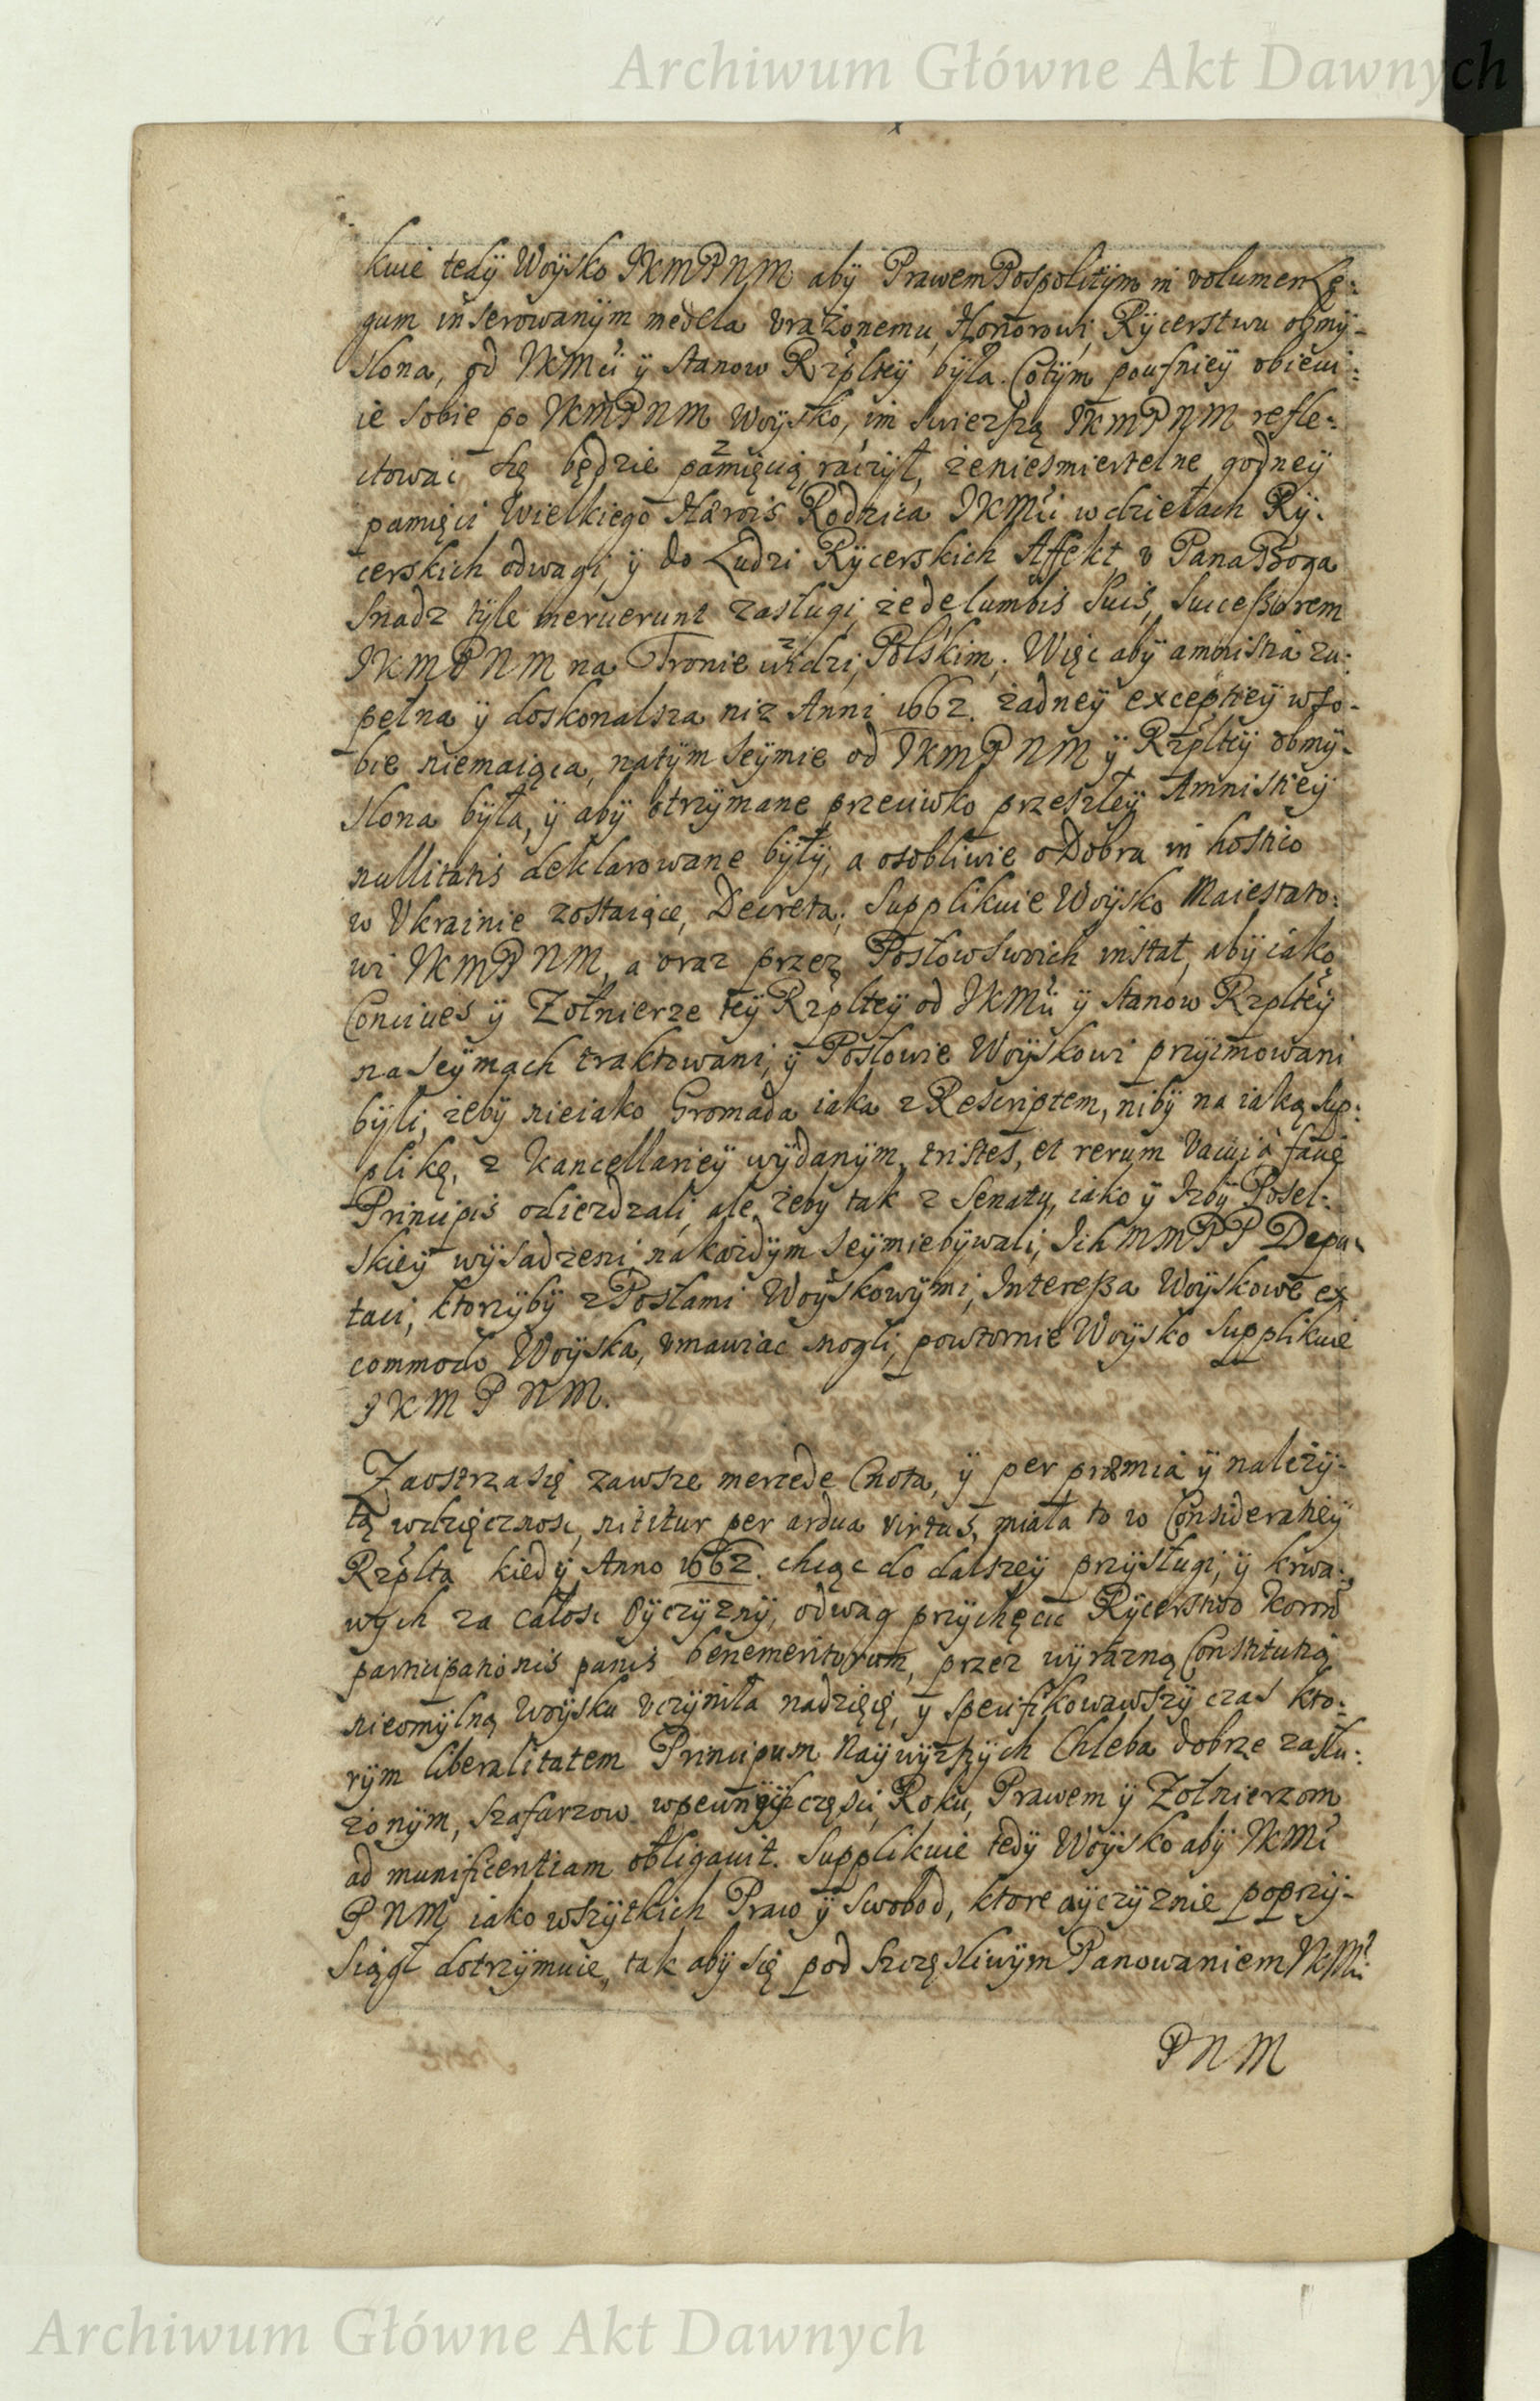 Archiwum Główne Akt Dawnych
kuie tedÿ Woÿsko JKMPNM abÿ Prawem Pospolitÿm in volumen Le:
gum inserowanÿm medela vrażonemu Honorowi Rÿcerstwu obmÿ-
slona, od JKMci ÿ Stanow Rzpltey bÿła. Cotÿm poufnieÿ obiecui:
ie sobie po JKMPNM Woÿsko, im swiezszą JKMPNM refle:
ctowac się będzie pamięcią raczÿł, że niesmiertelne godneÿ
pamięci Wielkiego Herois Rodzica JKMci w dziełach Rÿ:
cerskich odwagi, ÿ do Ludzi Rÿcerskich Affekt, v Pana Boga
snadz tÿle meruerunt zasługi, że de lumbis suis, Successorem
JKMPNM na Tronie widzi Polskim; Więc abÿ amnistia zu:
pełna ÿ doskonalsza niz Anni 1662. żadneÿ exceptieÿ wso-
bie niemaiąca, natÿm Seÿmie od JKMPNM ÿ Rzplteÿ obmÿ-
slona bÿła, ÿ abÿ otrzÿmane przeciwko przeszłeÿ Amnistieÿ
nullitatis deklarowane bÿłÿ, a osobliwie o Dobra in hostico
w Vkrainie zostaiące, Decreta; Supplikuie Woÿsko Maiestato:
wi JKMPNM, a oraz przez Posłow swoich instat, abÿ iako
Conciues ÿ Zołnierze teÿ Rzplteÿ od JKMci ÿ Stanow Rzplteÿ
na Seÿmach traktowani, ÿ Posłowie Woÿskowi przÿimowani
bÿli, żebÿ nieiako Gromada iaka z Rescriptem, nibÿ na iaką sup:
plikę, z Kancellarieÿ wÿdanÿm, tristes, et rerum vacui à facie
Principis odiezdzali, ale żebÿ tak z Senatu, iako ÿ Izbÿ Posel:
skieÿ wÿsadzeni na każdÿm Seÿmie bÿwali, Ich MMPP Depu:
taci, ktorzÿbÿ z Posłami Woÿskowÿmi, Interessa Woÿskowe ex
commodo Woÿska, vmawiac mogli, powtornie Woÿsko Supplikuie
JKMPNM.
Zaostrza się zawsze mercede Cnota, ÿ per præmia ÿ należÿ-
tą wdzięcznosc, nititur per ardua virtus, miała to w Consideratieÿ
Rzplta kiedÿ Anno 1662. chcąc do dalszeÿ przÿsługi, ÿ krwa:
wÿch za całosc Oÿczÿznÿ, odwag przÿchęcic Rÿcerstwo Koron
participationis panis benemeritorum, przez wÿrazną Constitutią
nieomÿlną Woÿsku vczÿniła nadzieię, ÿ specifikowawszÿ czas kto:
rÿm liberalitatem Principum Naÿwÿzszÿch Chleba dobrze zasłu:
zonÿm, Szafarzow wpewneÿ częsci Roku, Prawem ÿ Zołnierzom
ad munificentiam obligauit. Supplikuie tedÿ Woÿsko abÿ JKMci
PNM iako wszÿtkich Praw ÿ Swobod, ktore oÿczÿznie poprzÿ-
siągł dotrzÿmuie, tak abÿ się pod Szczęsliwÿm Panowaniem JKMci
PNM
Archiwum Główne Akt Dawnych